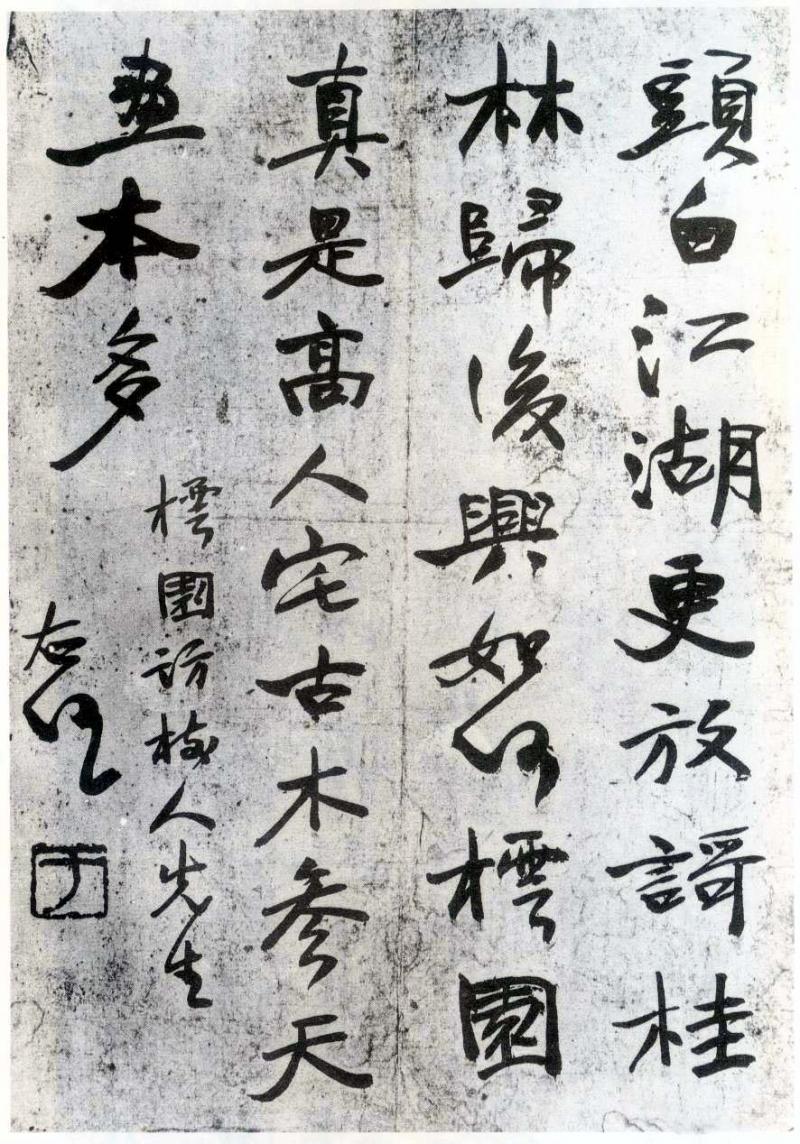 頭白江湖更放謌桂
林歸後興如何樗園
真是高人宅古木參天
畫本多
樗園訪梅人先生
右任
于